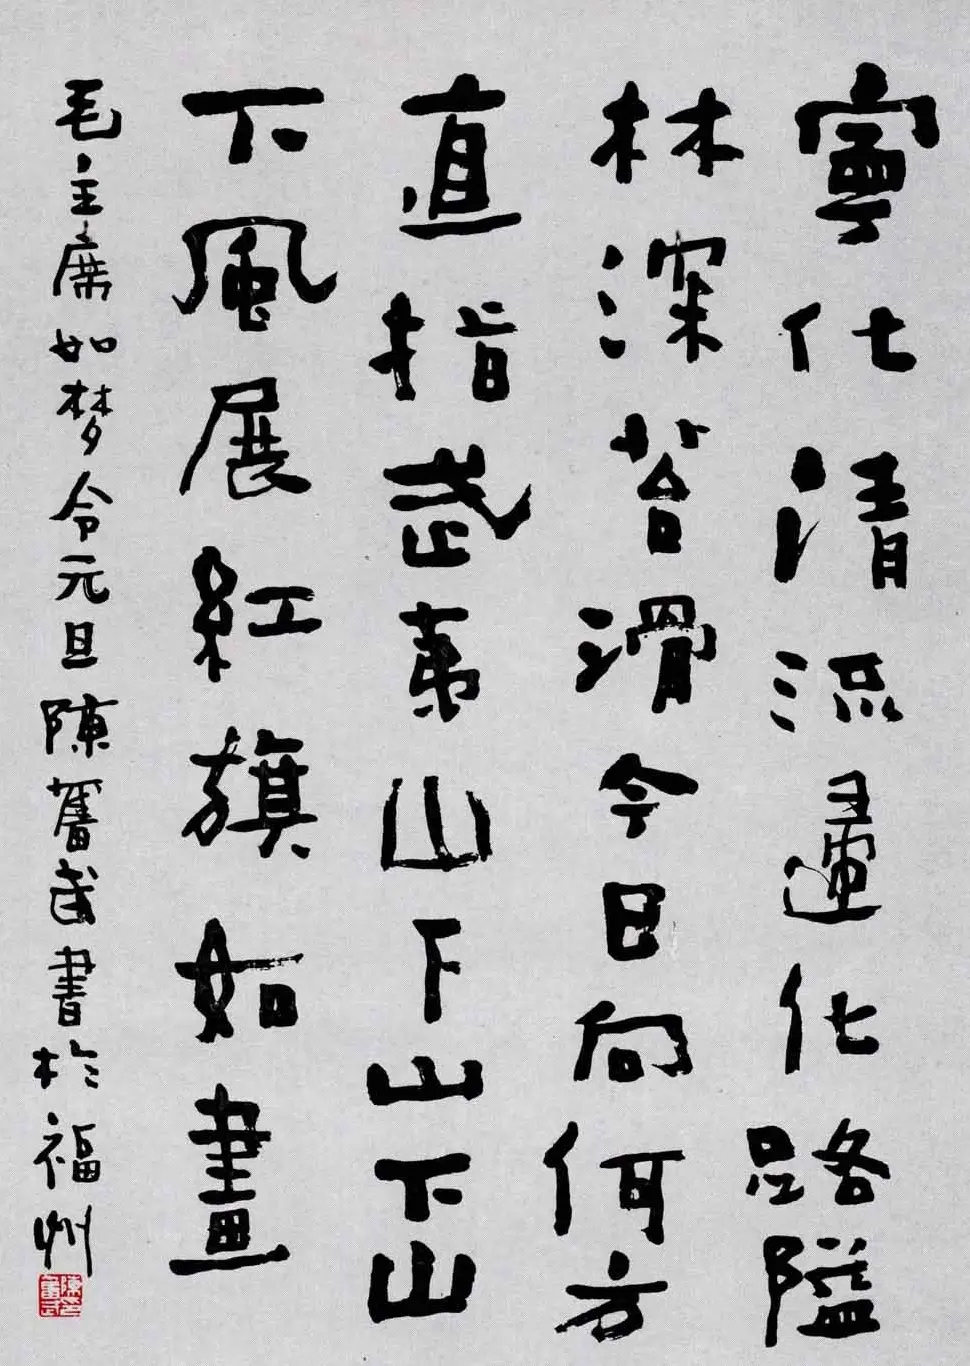 寧化清流歸化路隘
林深苔滑今日向何方
直指武夷山下山下山
下風展紅旗如畫
毛主席如梦令元旦陳奮武書於福州